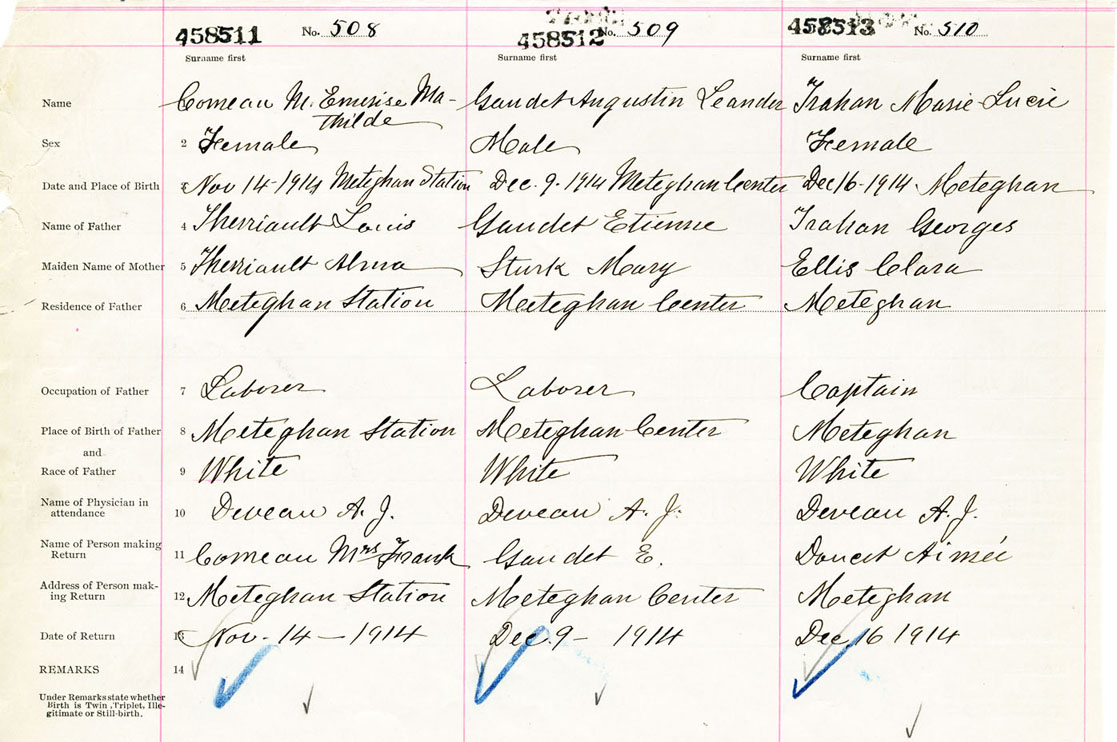 458511 No. 508 458512 No. 509 458513 No. 510
Surname first Surname first Surname first
Name Comeau M. Emerise Ma- Gaudet Augustin Leander Trahan Marie-Lucie
thilde
Sex 2 Female Male Female
Date and Place of Birth 3 Nov 14-1914 Meteghan Station Dec. 9-1914 Meteghan Center Dec 16-1914 Meteghan
Name of Father 4 Therriault Louis Gaudet Etienne Trahan Georges
Maiden Name of Mother 5 Therriault Alma Sturk Mary Ellis Clara
Residence of Father 6 Meteghan Station Meteghan Center Meteghan
Occupation of Father 7 Laborer Laborer Captain
Place of Birth of Father 8 Meteghan Station Meteghan Center Meteghan
and
Race of Father 9 White White White
Name of Physician in
attendance 10 Deveau A. J. Deveau A. J. Deveau A. J.
Name of Person making
Return 11 Comeau Mrs Frank Gaudet E. Doucet Aimée
Address of Person mak-
ing Return 12 Meteghan Station Meteghan Center Meteghan
Date of Return 13 Nov-14-1914 Dec. 9- 1914 Dec 16 1914
REMARKS 14
Under Remarks state whether
Birth is Twin, Triplet, Ille-
gitimate or Still-birth.